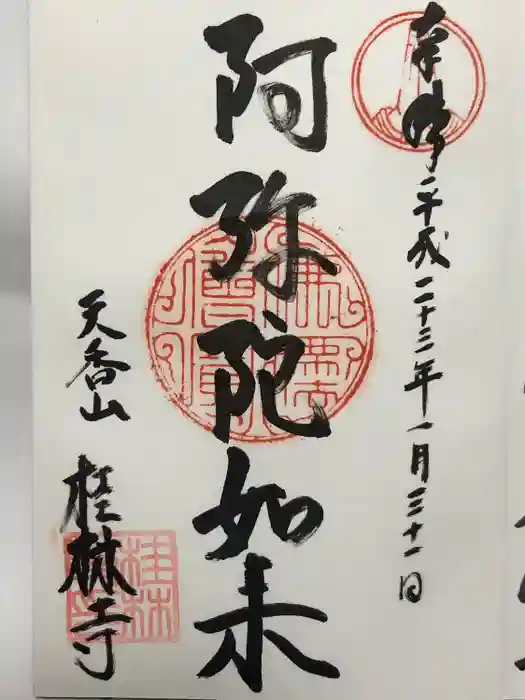 奉拝 平成二十三年一月三十一日
阿弥陀如来
天香山 桂林寺